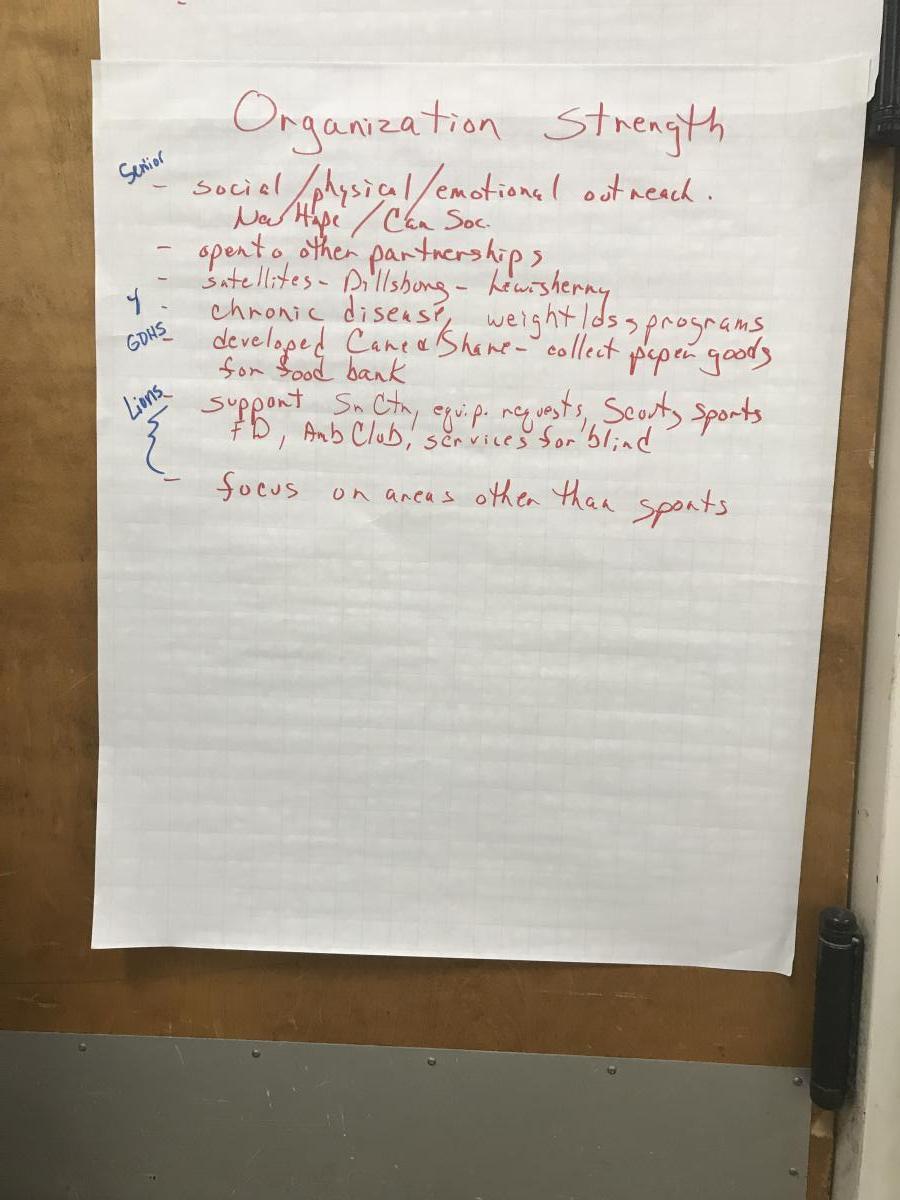 Organization Strength
Senior
- social/physical/emotional outreach.
New Hope / Can Soc.
- open to other partnerships
- satellites - Dillsburg - Lewisberry
Y - chronic disease, weight loss programs
GDHS - developed Care & Share - collect paper goods
for food bank
Lions - support Sr Ctr, equip. requests, Scouts, sports
FD, Amb Club, services for blind
- focus on areas other than sports